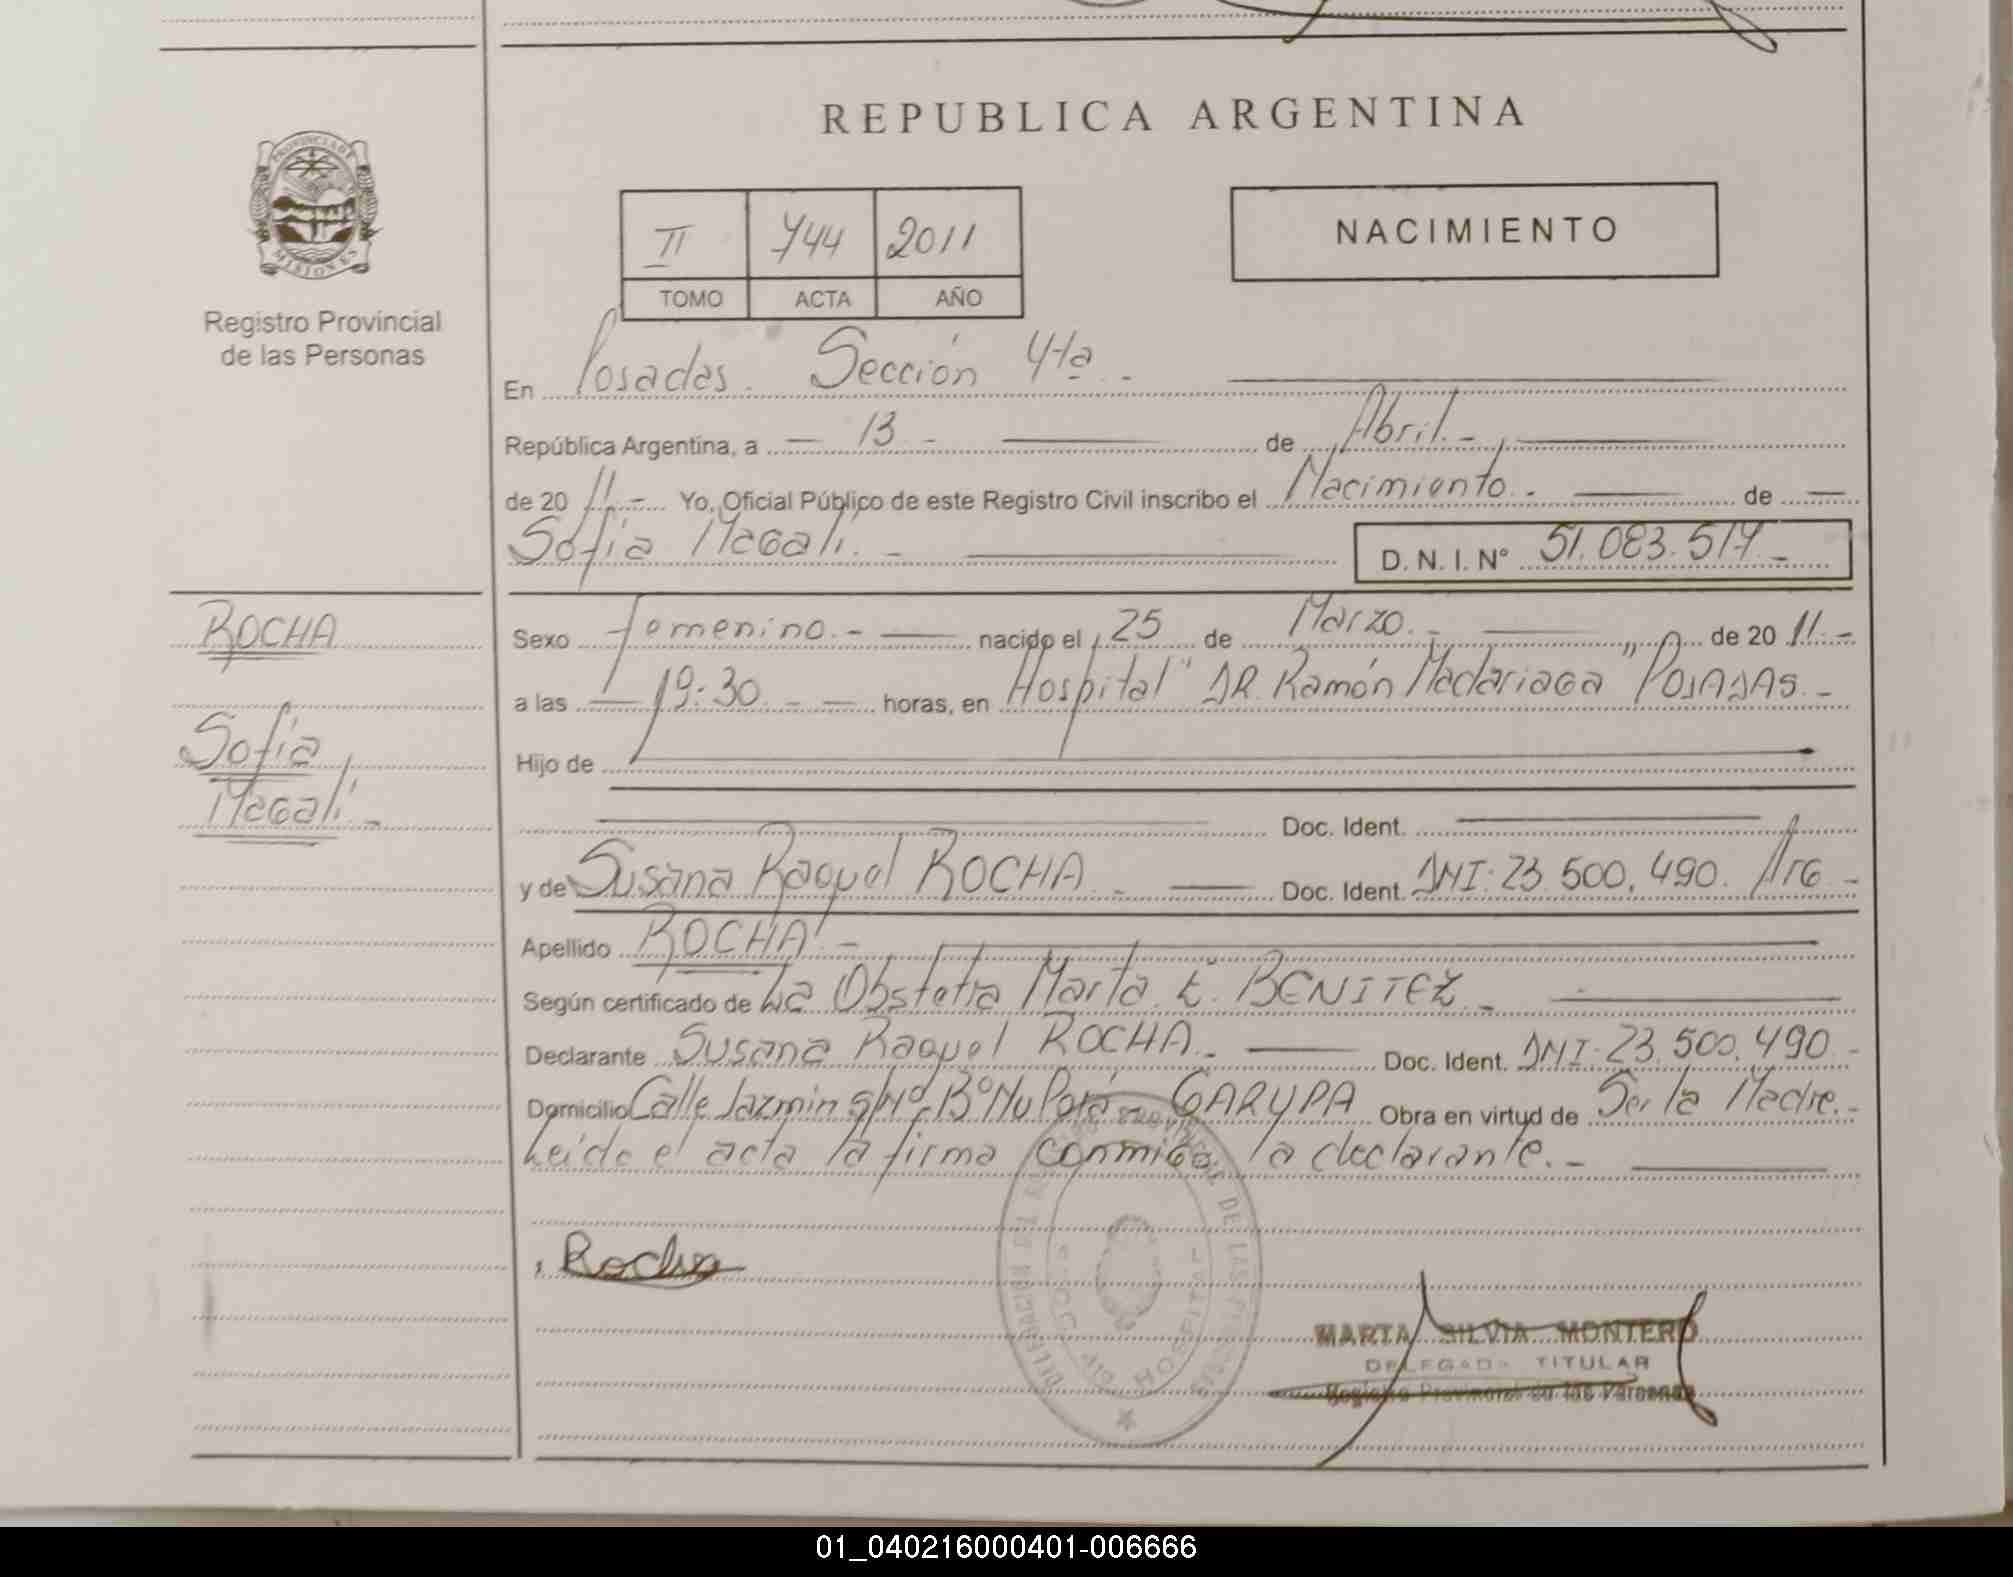 REPUBLICA ARGENTINA
PROVINCIA DE
MISIONES
Registro Provincial
de las Personas
II 744 2011
TOMO ACTA AÑO
NACIMIENTO
En Posadas. Sección 4ta. -
República Argentina, a - 13 - de Abril. -
de 20 11. - Yo, Oficial Público de este Registro Civil inscribo el Nacimiento. - de -
Sofía Magalí. - D. N. I. Nº 51.083.517 -
ROCHA
Sofía
Magalí. -
Sexo Femenino. - nacido el 25 de Marzo. - de 20 11. -
a las - 19:30. - - horas, en Hospital "DR. Ramón Madariaga" POSADAS. -
Hijo de
Doc. Ident.
y de Susana Raquel ROCHA. - Doc. Ident. DNI: 23.500.490. Arg -
Apellido ROCHA. -
Según certificado de La Obstetra Marta E. BENITEZ. -
Declarante Susana Raquel ROCHA. - Doc. Ident. DNI: 23.500.490. -
Domicilio Calle Jazmin S/Nº. Bº Ñu Porá - GARUPA Obra en virtud de Ser la Madre. -
Leído el acta la firma conmigo la declarante. -
Rocha
HOSPITAL
MARTA SILVIA MONTERO
DELEGADA TITULAR
Registro Provincial de las Personas
01_040216000401-006666